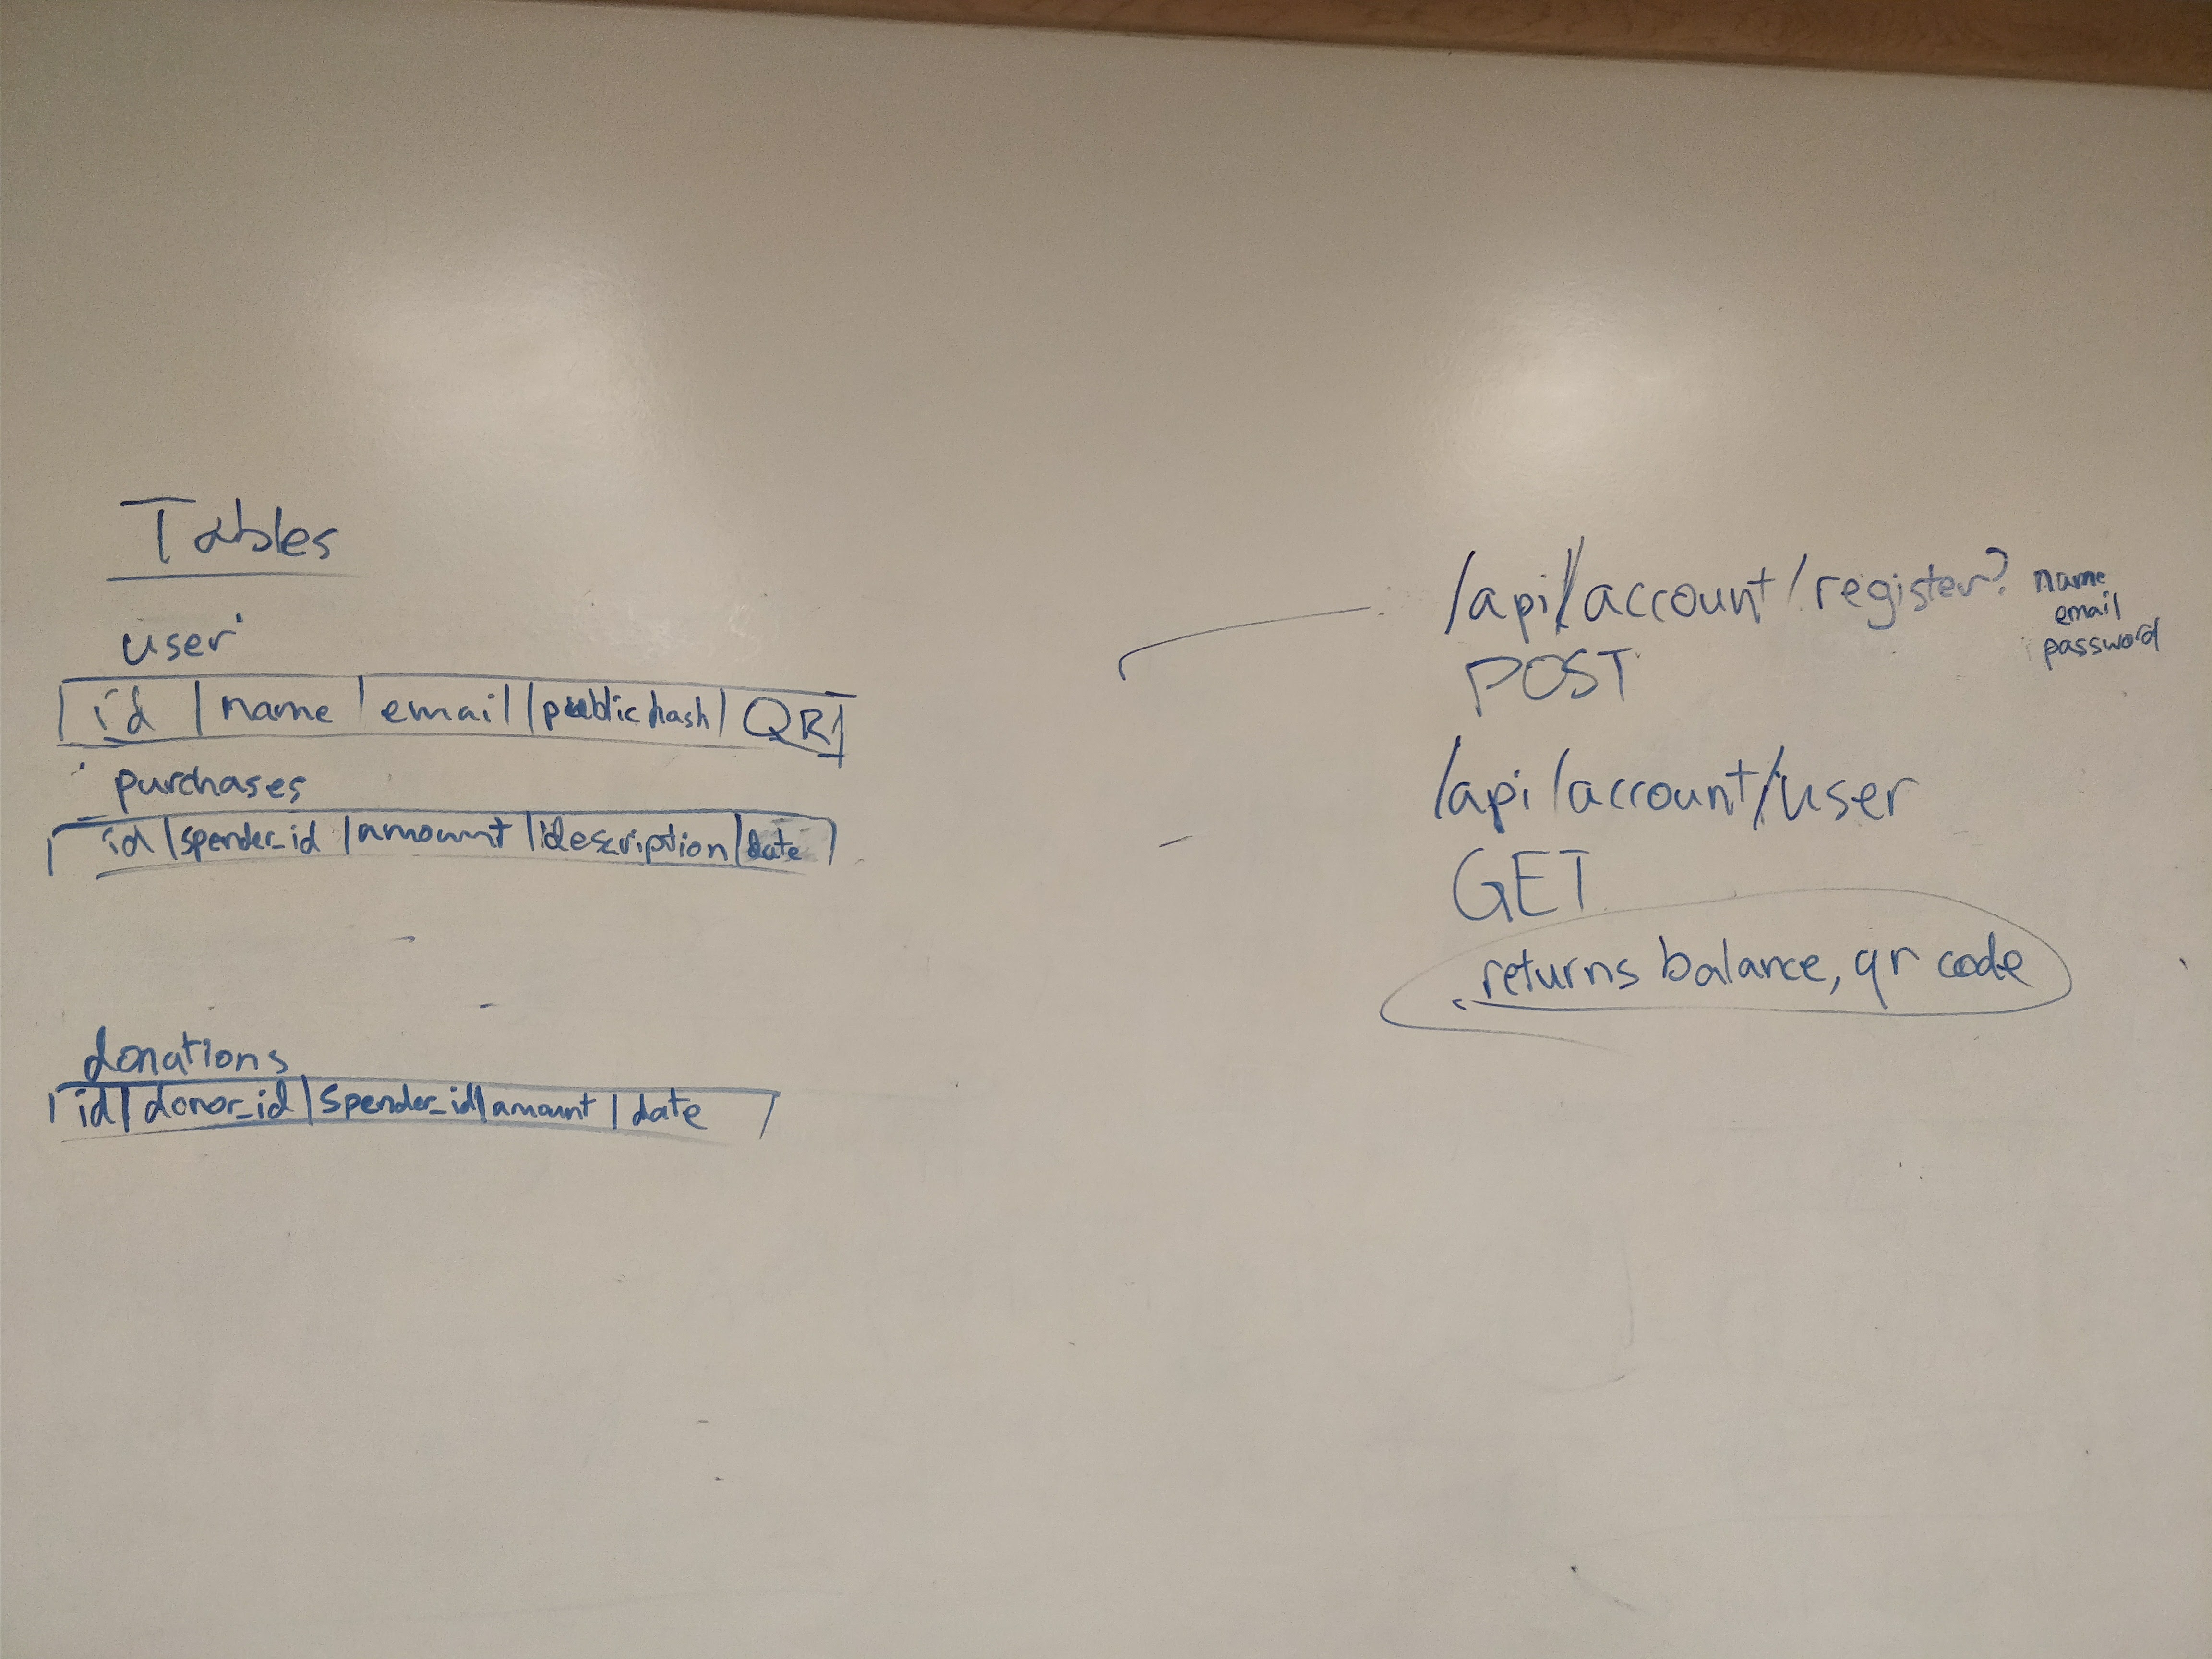 Tables
user
id | name | email | public hash | QR
purchases
id | spender_id | amount | description | date
donations
id | donor_id | spender_id | amount | date
/api/account/register? name
email
password
POST
/api/account/user
GET
returns balance, qr code